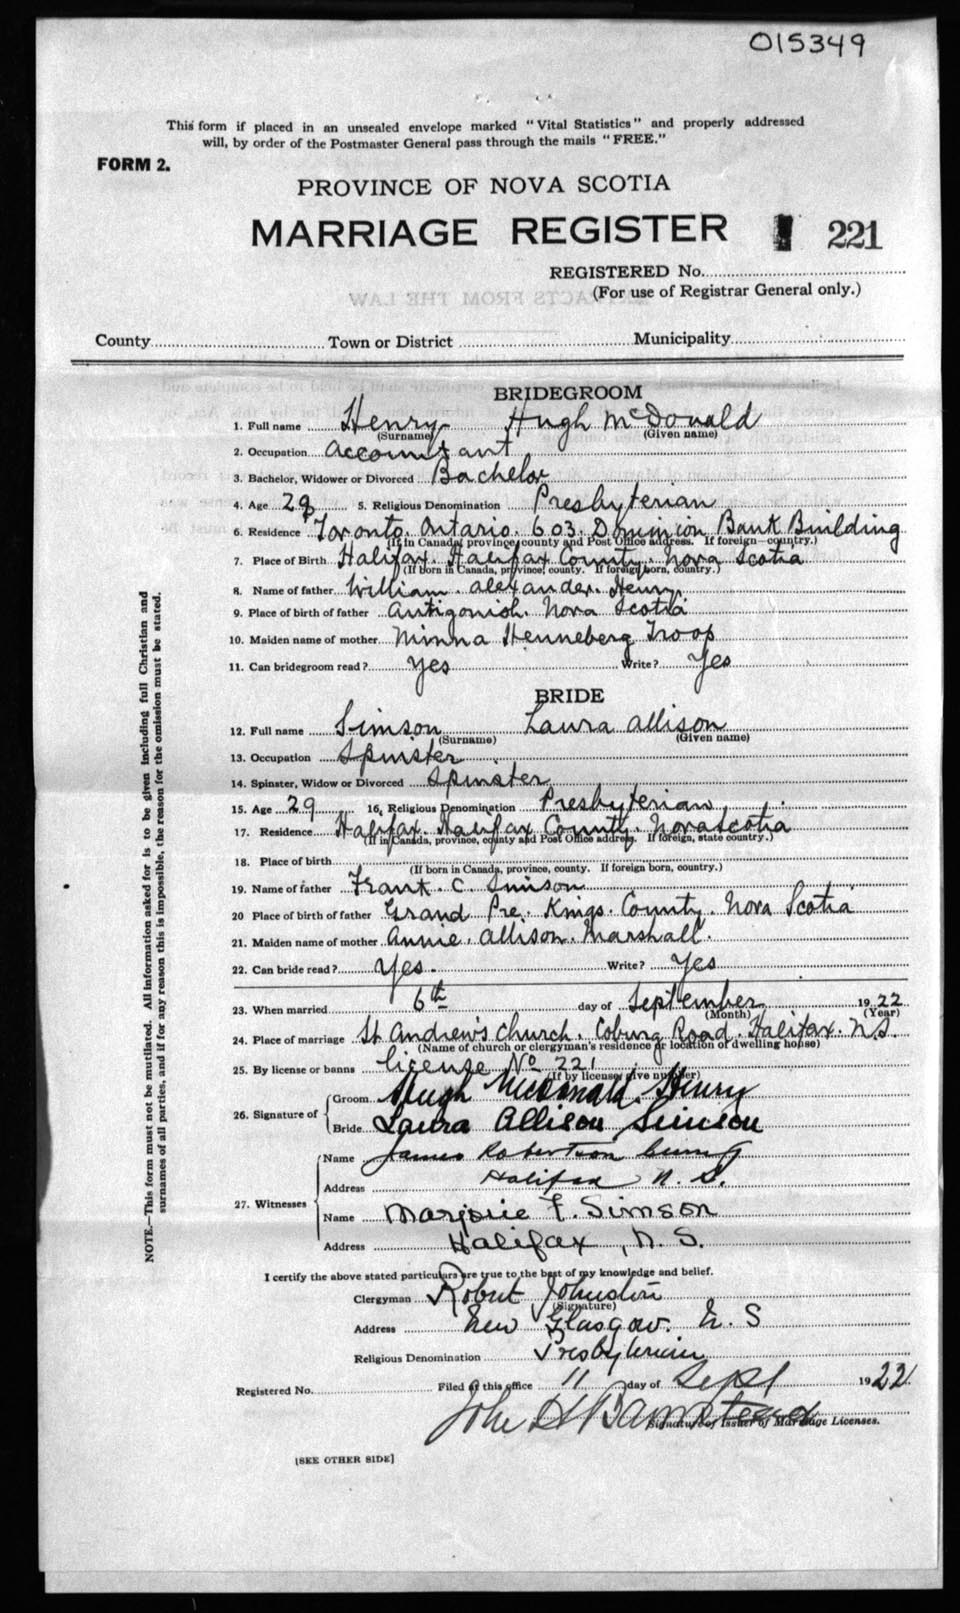 015349
This form if placed in an unsealed envelope marked "Vital Statistics" and properly addressed
will, by order of the Postmaster General pass through the mails "FREE."
FORM 2.
PROVINCE OF NOVA SCOTIA
MARRIAGE REGISTER 221
REGISTERED No.
(For use of Registrar General only.)
County Town or District Municipality
BRIDEGROOM
1. Full name Henry Hugh McDonald
(Surname) (Given name)
2. Occupation Accountant
3. Bachelor, Widower or Divorced Bachelor
4. Age 29 5. Religious Denomination Presbyterian
6. Residence Toronto. Ontario. 603. Dominion Bank Building
(If in Canada, province, county and Post Office address. If foreign—country.)
7. Place of Birth Halifax. Halifax County. Nova Scotia
(If born in Canada, province, county. If foreign born, country.)
8. Name of father William. Alexander. Henry.
9. Place of birth of father Antigonish. Nova Scotia
10. Maiden name of mother Minna Henneberg Troop
11. Can bridegroom read? Yes Write? Yes
BRIDE
12. Full name Simson Laura Allison
(Surname) (Given name)
13. Occupation Spinster
14. Spinster, Widow or Divorced Spinster
15. Age 29 16. Religious Denomination Presbyterian
17. Residence Halifax. Halifax County. Nova Scotia
(If in Canada, province, county and Post Office address. If foreign, state country.)
18. Place of birth
(If born in Canada, province, county. If foreign born, country.)
19. Name of father Frank. C. Simson
20 Place of birth of father Grand Pre. Kings. County. Nova Scotia
21. Maiden name of mother Annie. Allison. Marshall.
22. Can bride read? Yes. Write? Yes
23. When married 6th day of September 1922
(Month) (Year)
24. Place of marriage St Andrew's Church. Coburg Road. Halifax. N.S.
(Name of church or clergyman's residence or location of dwelling house)
25. By license or banns license No 221
(If by license, give number)
26. Signature of Groom Hugh McDonald Henry
Bride Laura Allison Simson
27. Witnesses Name James Robertson
Address Halifax N. S.
Name Marjorie F. Simson
Address Halifax, N. S.
I certify the above stated particulars are true to the best of my knowledge and belief.
Clergyman Robert Johnston
(Signature)
Address New Glasgow. N. S
Religious Denomination Presbyterian
Registered No. Filed at this office 11 day of Sept 1922.
John
Signature of Issuer of Marriage Licenses.
[SEE OTHER SIDE]
NOTE.—This form must not be mutilated. All information asked for is to be given including full Christian and
surnames of all parties, and if for any reason this is impossible, the reason for the omission must be stated.